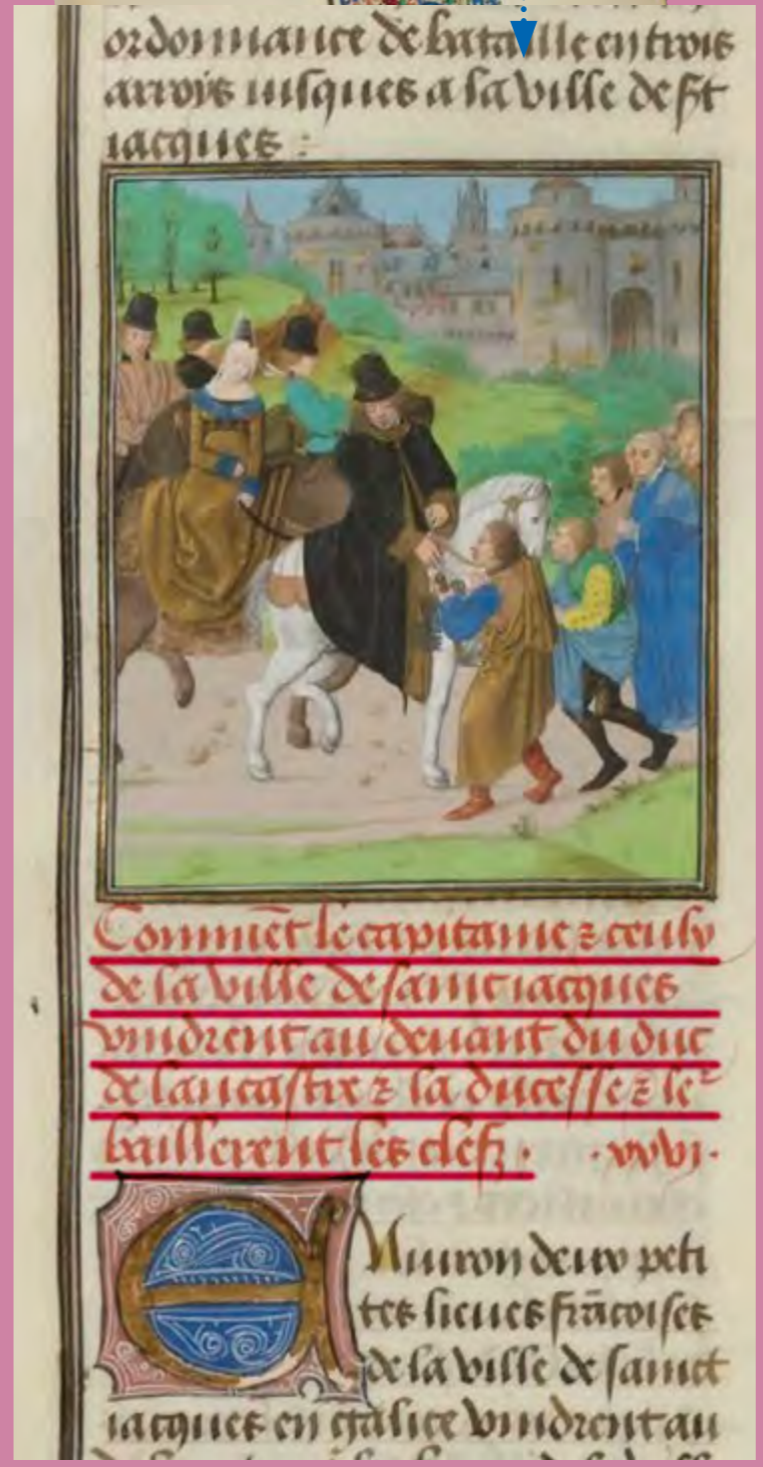 ordonnance de bataille en trois
arrois iusques a la ville de st
iacques :
Commēt le capitaine ⁊ ceulx
de la ville de sainct iacques
vindrent au deuant du duc
de lancastre ⁊ la ducesse ⁊ leꝛ
baillerent les clefz . . xxvi .
Enuiron deux peti
tes lieues frācoises
de la ville de sainct
iacques en galice vindrent au